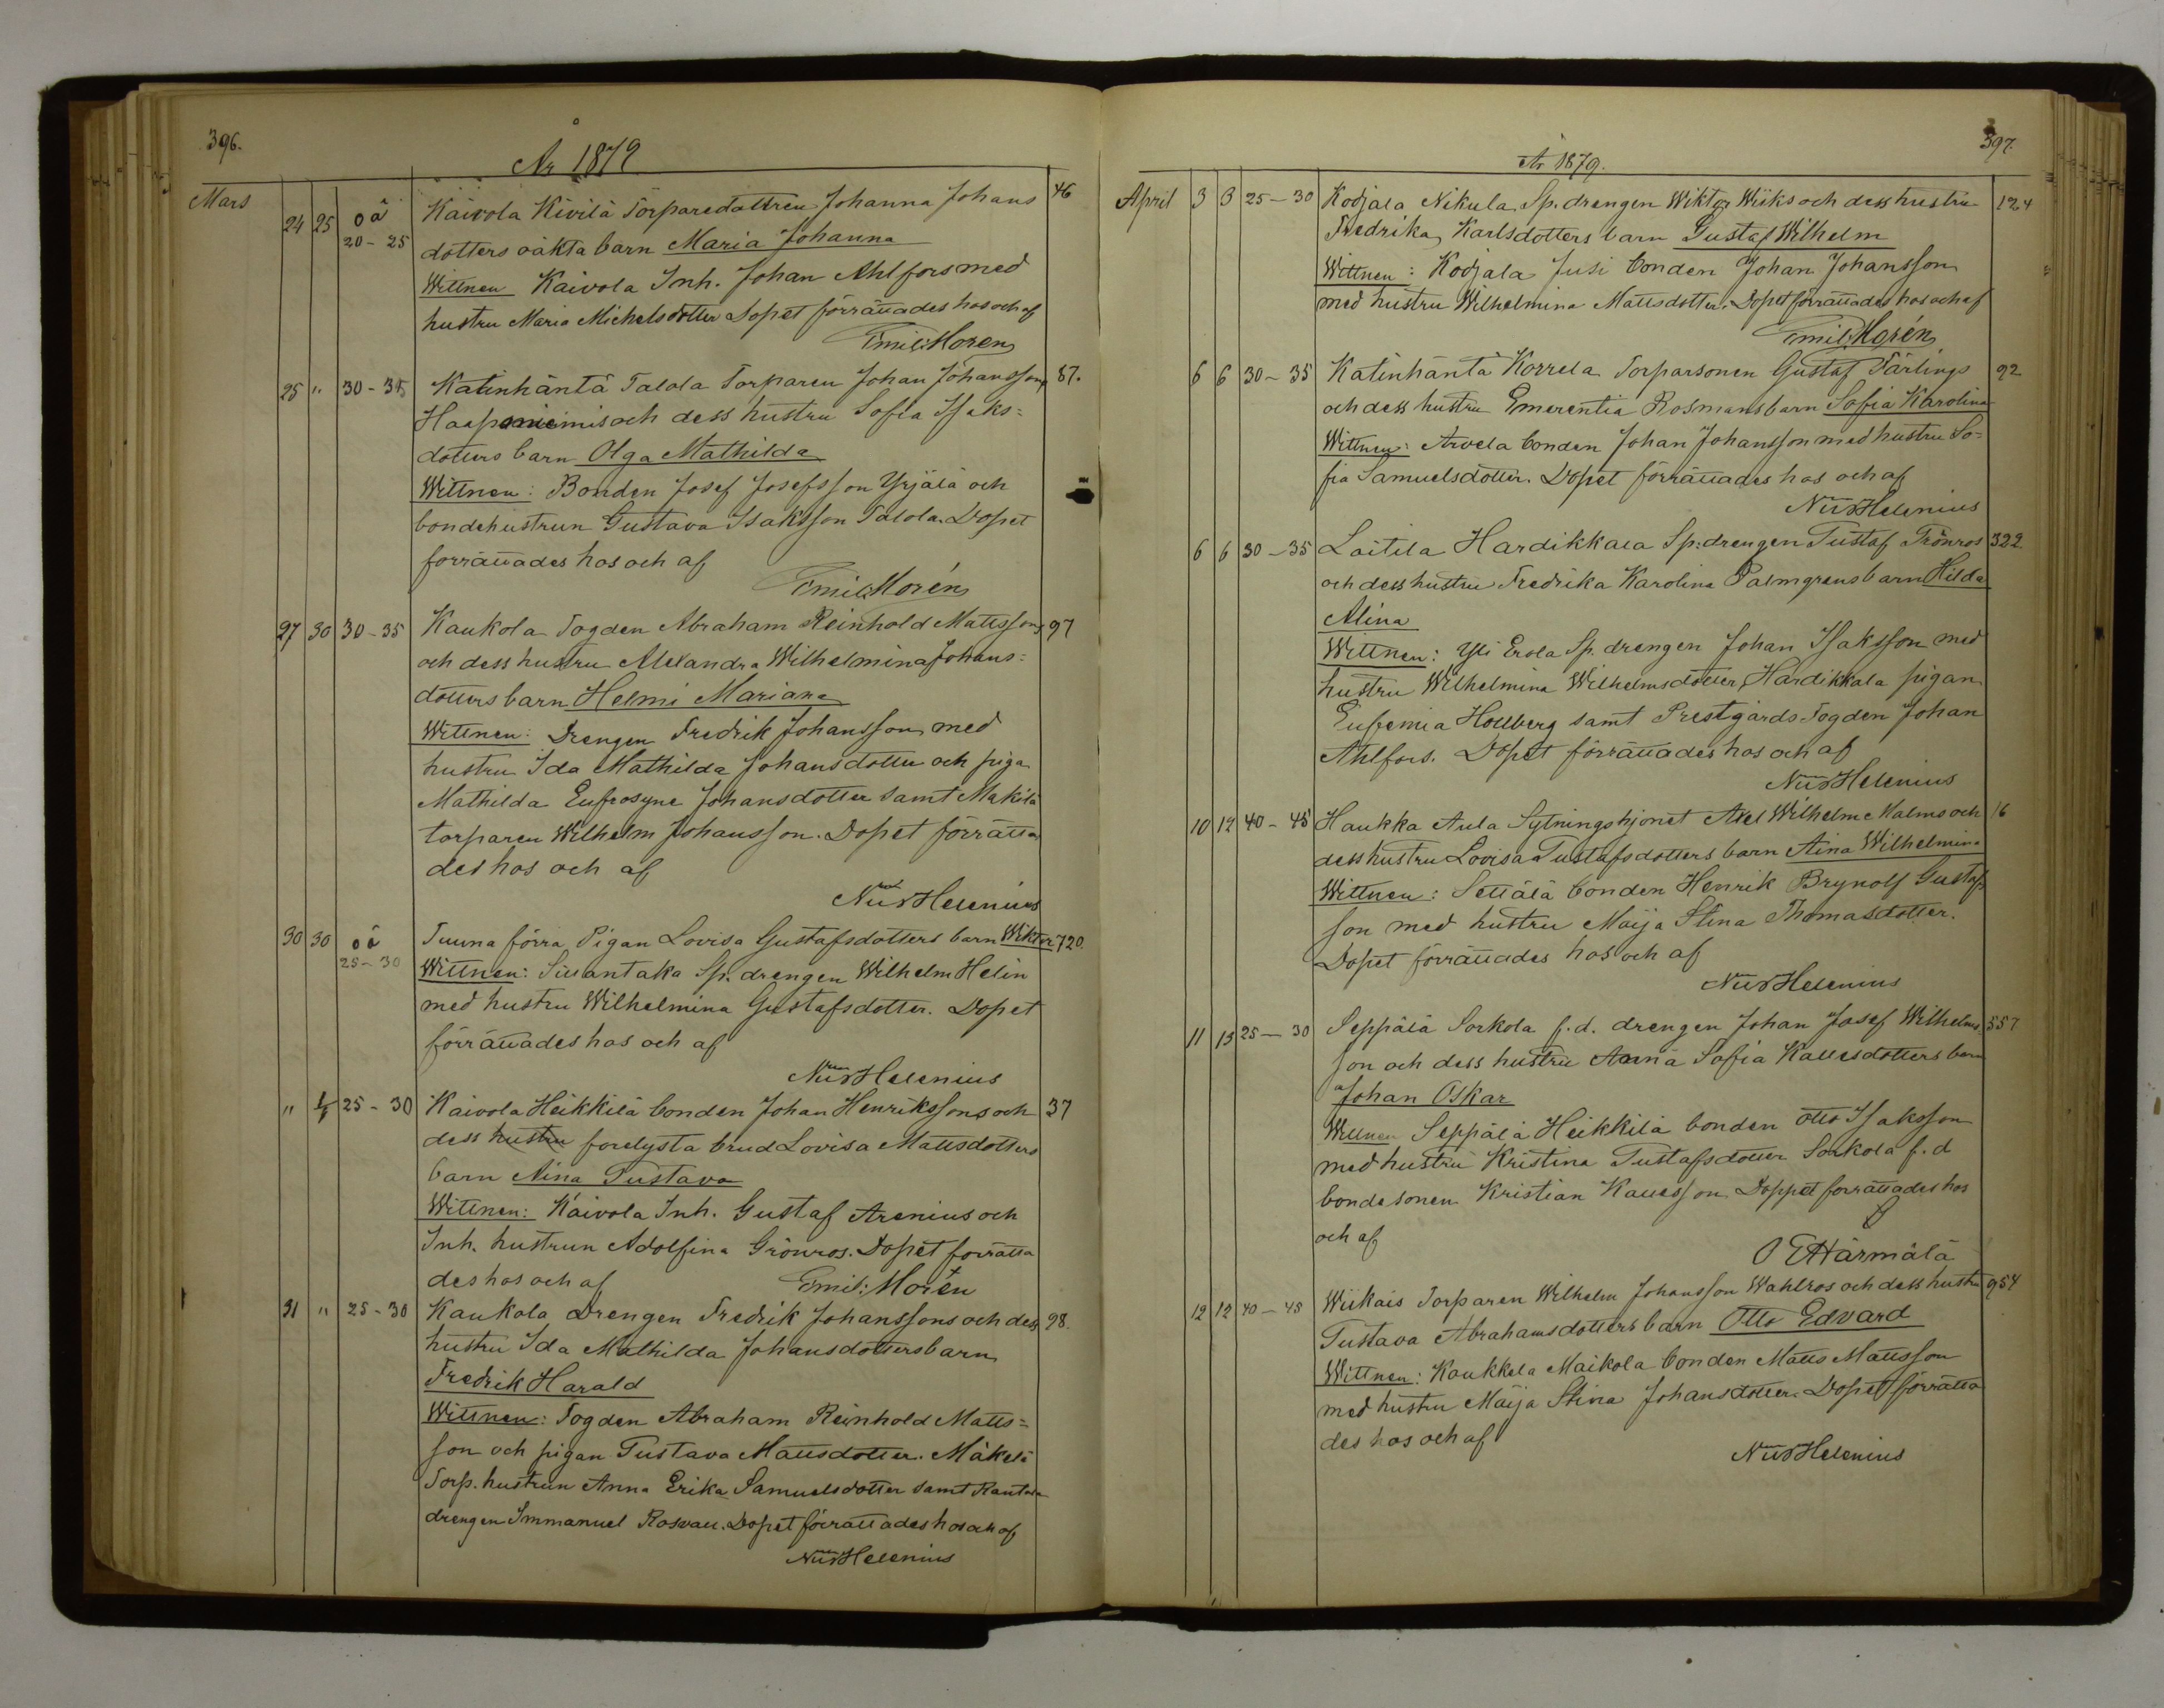 396.
År 1879
Mars
24 25 oä 20-25 Kaivola Kivilä Torparedottren Johanna Johans 46
dotters oäkta barn Maria Johanna
Wittnen Kaivola Inh. Johan Ahlfors med
hustru Maria Michelsdotter Dopet förrättades hos och af
Emil Morén
25 " 30-35 Katinhäntä Talola Torparen Johan Johansson 87.
Haaponiemis och dess hustru Sofia Isaks=
dotters barn Olga Mathilda
Wittnen: Bonden Josef Josefsson Yrjälä och
bondehustrun Gustava Isaksson Talola. Dopet
förrättades hos och af
Emil Morén
27 30 30-35 Kaukola Fogden Abraham Reinhold Mattssons 97
och dess hustru Alexandra Wilhelmina Johans=
dotters barn Helmi Mariana
Wittnen: Drengen Fredrik Johansson med
hustru Ida Mathilda Johansdotter och piga
Mathilda Eufrosyne Johansdotter samt Mäkilä
torparen Wilhelm Johansson. Dopet förrätta
des hos och af
Helenius
30 30 oä 25-30 Tuuna förra Pigan Lovisa Gustafsdotters barn Wiktor 720.
Wittnen: Sillantaka Sp. drengen Wilhelm Helin
med hustru Wilhelmina Gustafsdotter. Dopet
förrättades hos och af
Helenius
" 1/4 25-30 Kaivola Heikkilä bonden Johan Henrikssons och 37
dess hustru förelysta brud Lovisa Mattsdotters
barn Aina Gustava
Wittnen: Kaivola Inh. Gustaf Arenius och
Inh. hustrun Adolfina Grönros. Dopet förrätta
des hos och af Emil: Morén
31 " 25-30 Kaukola Drengen Fredrik Johanssons och dess 98.
hustru Ida Mathilda Johansdotters barn
Fredrik Harald
Wittnen: Fogden Abraham Reinhold Matts=
son och pigan Gustava Mattsdotter. Mäkelä
Torp. hustrun Anna Erika Samuelsdotter samt Rantala
drengen Immanuel Rosvall. Dopet förrättades hos och af
Helenius
397.
År 1879.
April 3 3 25-30 Kodjala Nikula Sp. drengen Wiktor Wiiks och dess hustru 124
Fredrika Karlsdotters barn Gustaf Wilhelm
Wittnen: Kodjala Jusi bonden Johan Johansson
med hustru Wilhelmina Mattsdotter. Dopet förrättades hos och af
Emil Morén
6 6 30-35 Katinhäntä Korrela Torparsonen Gustaf Färlings 92
och dess hustru Emerentia Rosmans barn Sofia Karolina
Wittnen: Arvela bonden Johan Johansson med hustru So=
fia Samuelsdotter. Dopet förrättades hos och af
Helenius
6 6 30-35 Laitila Hardikkala Sp: drengen Gustaf Grönros 322
och dess hustru Fredrika Karolina Palmgrens barn Hilda
Alina
Wittnen: Yli Erola Sp. drengen Johan Isaksson med
hustru Wilhelmina Wilhelmsdotter, Hardikkala pigan
Eufemia Hollberg samt Prestgårds Fogden Johan
Ahlfors. Dopet förrättades hos och af
Helenius
10 12 40-45 Haukka Aula Sytningshjonet Axel Wilhelm Malms och 16
dess hustru Lovisa Gustafsdotters barn Aina Wilhelmina
Wittnen: Settälä bonden Henrik Brynolf Gustafs
son med hustru Maija Stina Thomasdotter.
Dopet förrättades hos och af
Helenius
11 13 25-30 Seppälä Sorkola f.d. drengen Johan Josef Wilhelms 557
son och dess hustru Anna Sofia Kallesdotters barn
Johan Oskar
Wittnen Seppälä Heikkilä bonden Otto Isaksson
med hustru Kristina Gustafsdotter Sorkola f.d
bondesonen Kristian Kallesson. Doppet förrättades hos
och af
O E Härmälä
12 12 40-45 Wiikais Torparen Wilhelm Johansson Wahlros och dess hustru 954
Gustava Abrahamsdotters barn Otto Edvard
Wittnen: Kaukkela Maikola bonden Matts Mattsson
med hustru Maija Stina Johansdotter. Dopet förrätta
des hos och af
Helenius